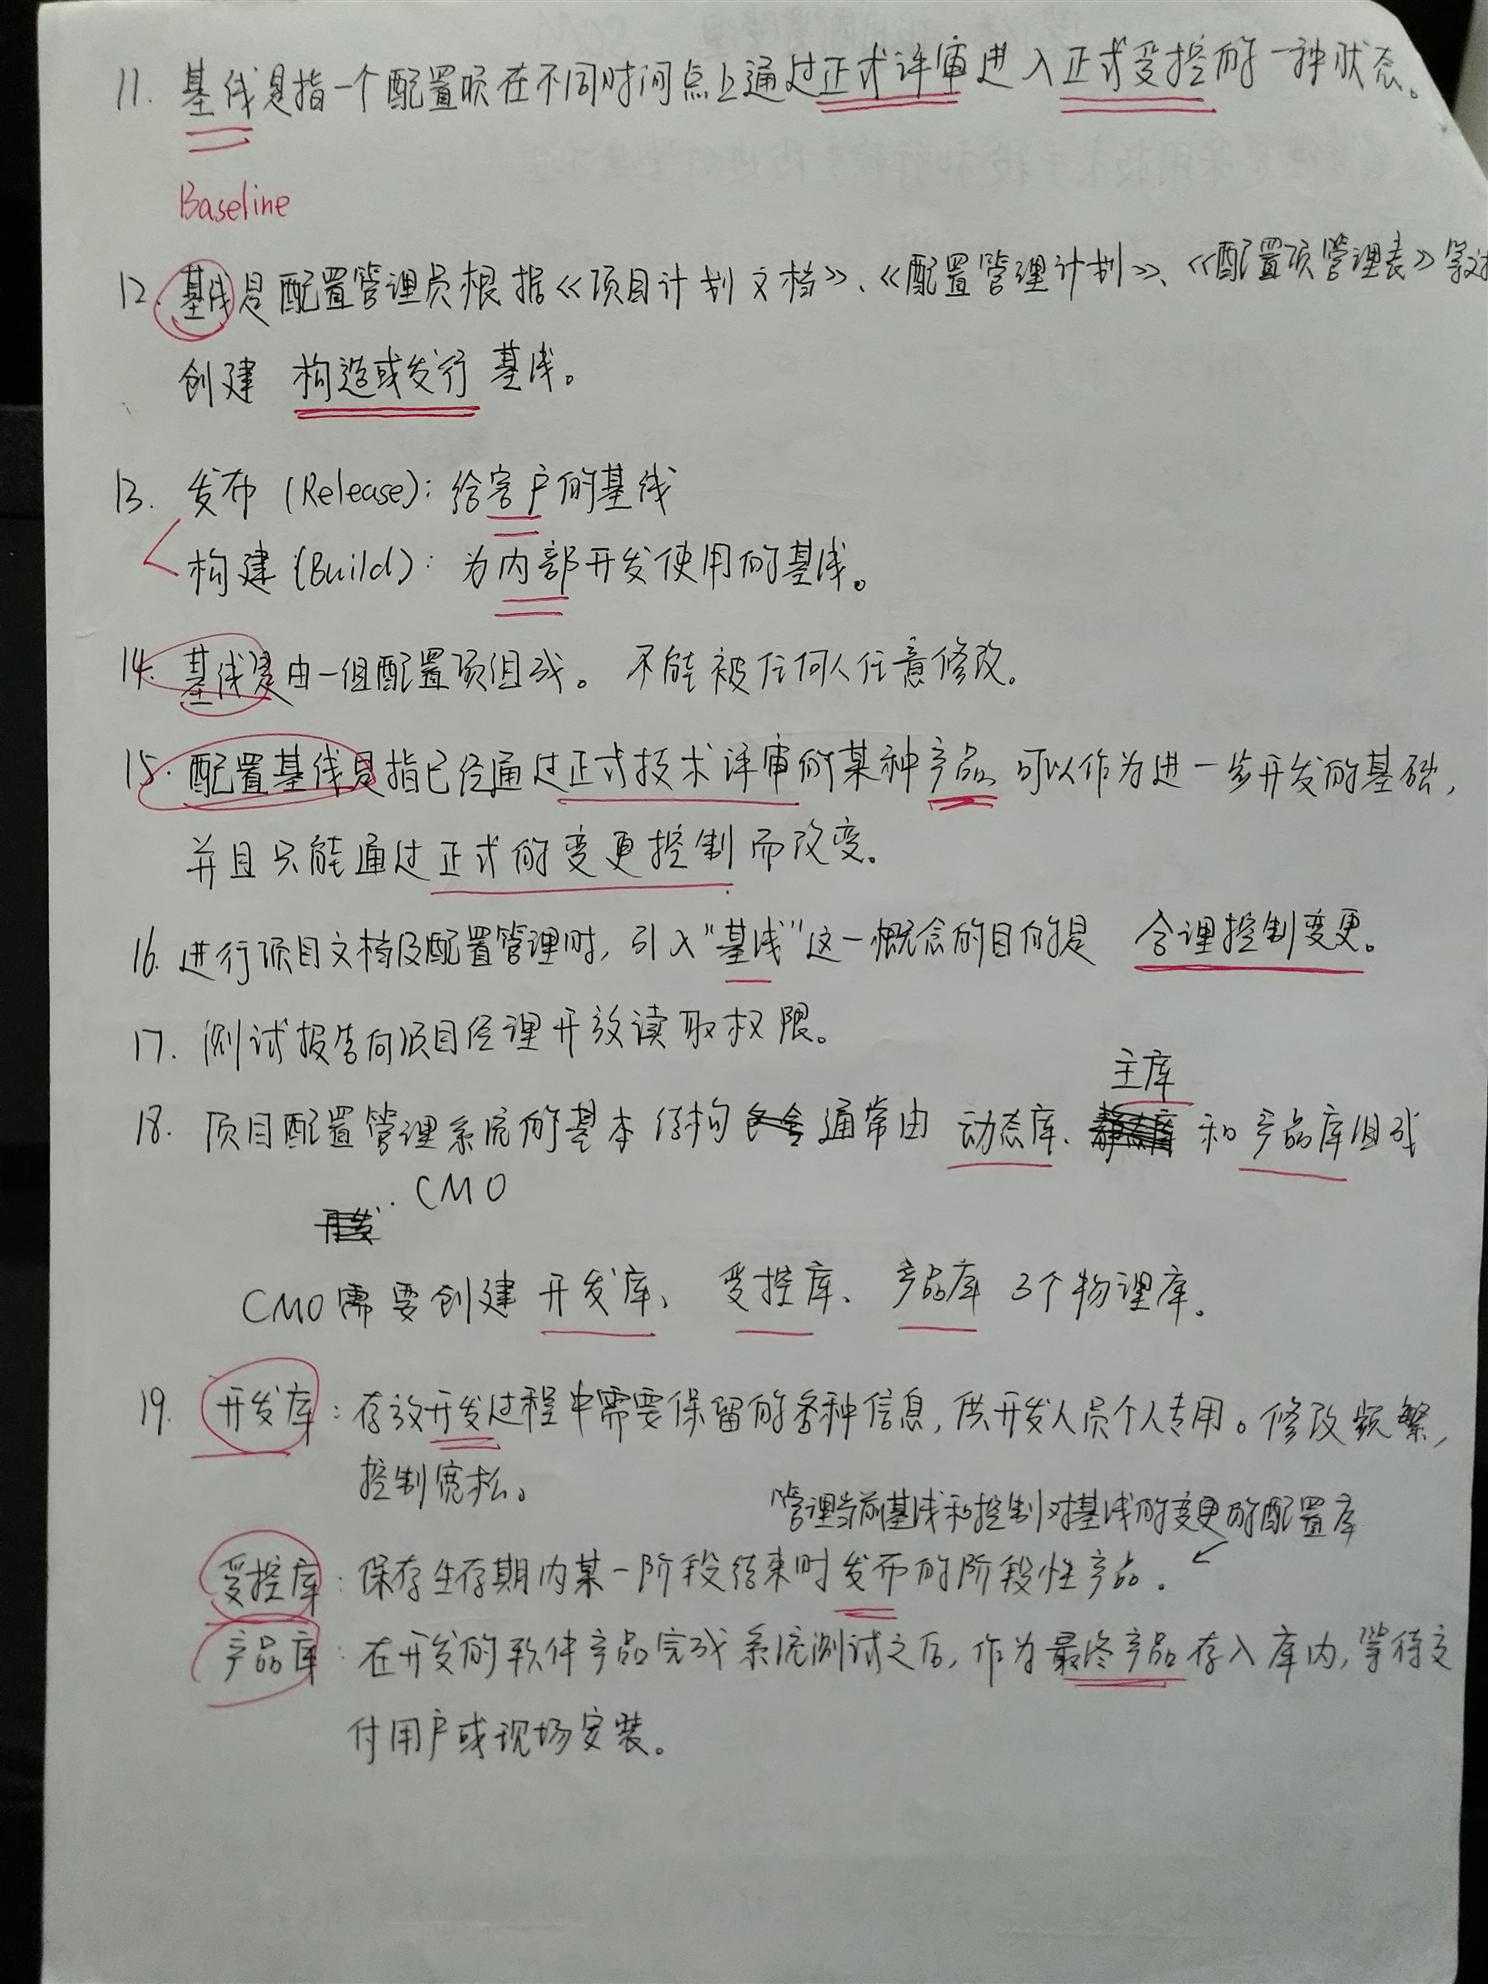 11. 基线是指一个配置项在不同时间点上通过正式评审进入正式受控的一种状态。
Baseline
12. 基线是配置管理员根据《项目计划文档》、《配置管理计划》、《配置项管理表》等文
创建 构造或发行 基线。
13. 发布 (Release): 给客户的基线
构建 (Build): 为内部开发使用的基线。
14. 基线是由一组配置项组成。 不能被任何人任意修改。
15. 配置基线是指已经通过正式技术评审的某种产品 可以作为进一步开发的基础,
并且只能通过正式的变更控制而改变。
16. 进行项目文档及配置管理时, 引入"基线"这一概念的目的是 合理控制变更。
17. 测试报告向项目经理开放读取权限。
主库
18. 项目配置管理系统的基本结构 通常由 动态库、 和 产品库组成
CMO
CMO需要创建 开发库、 受控库、 产品库 3个物理库。
19. 开发库: 存放开发过程中需要保留的各种信息, 供开发人员个人专用。修改频繁,
控制宽松。
管理当前基线和控制对基线的变更的配置库
受控库: 保存生存期内某一阶段结束时发布的阶段性产品.
产品库: 在开发的软件产品完成系统测试之后, 作为最终产品存入库内, 等待交
付用户或现场安装。